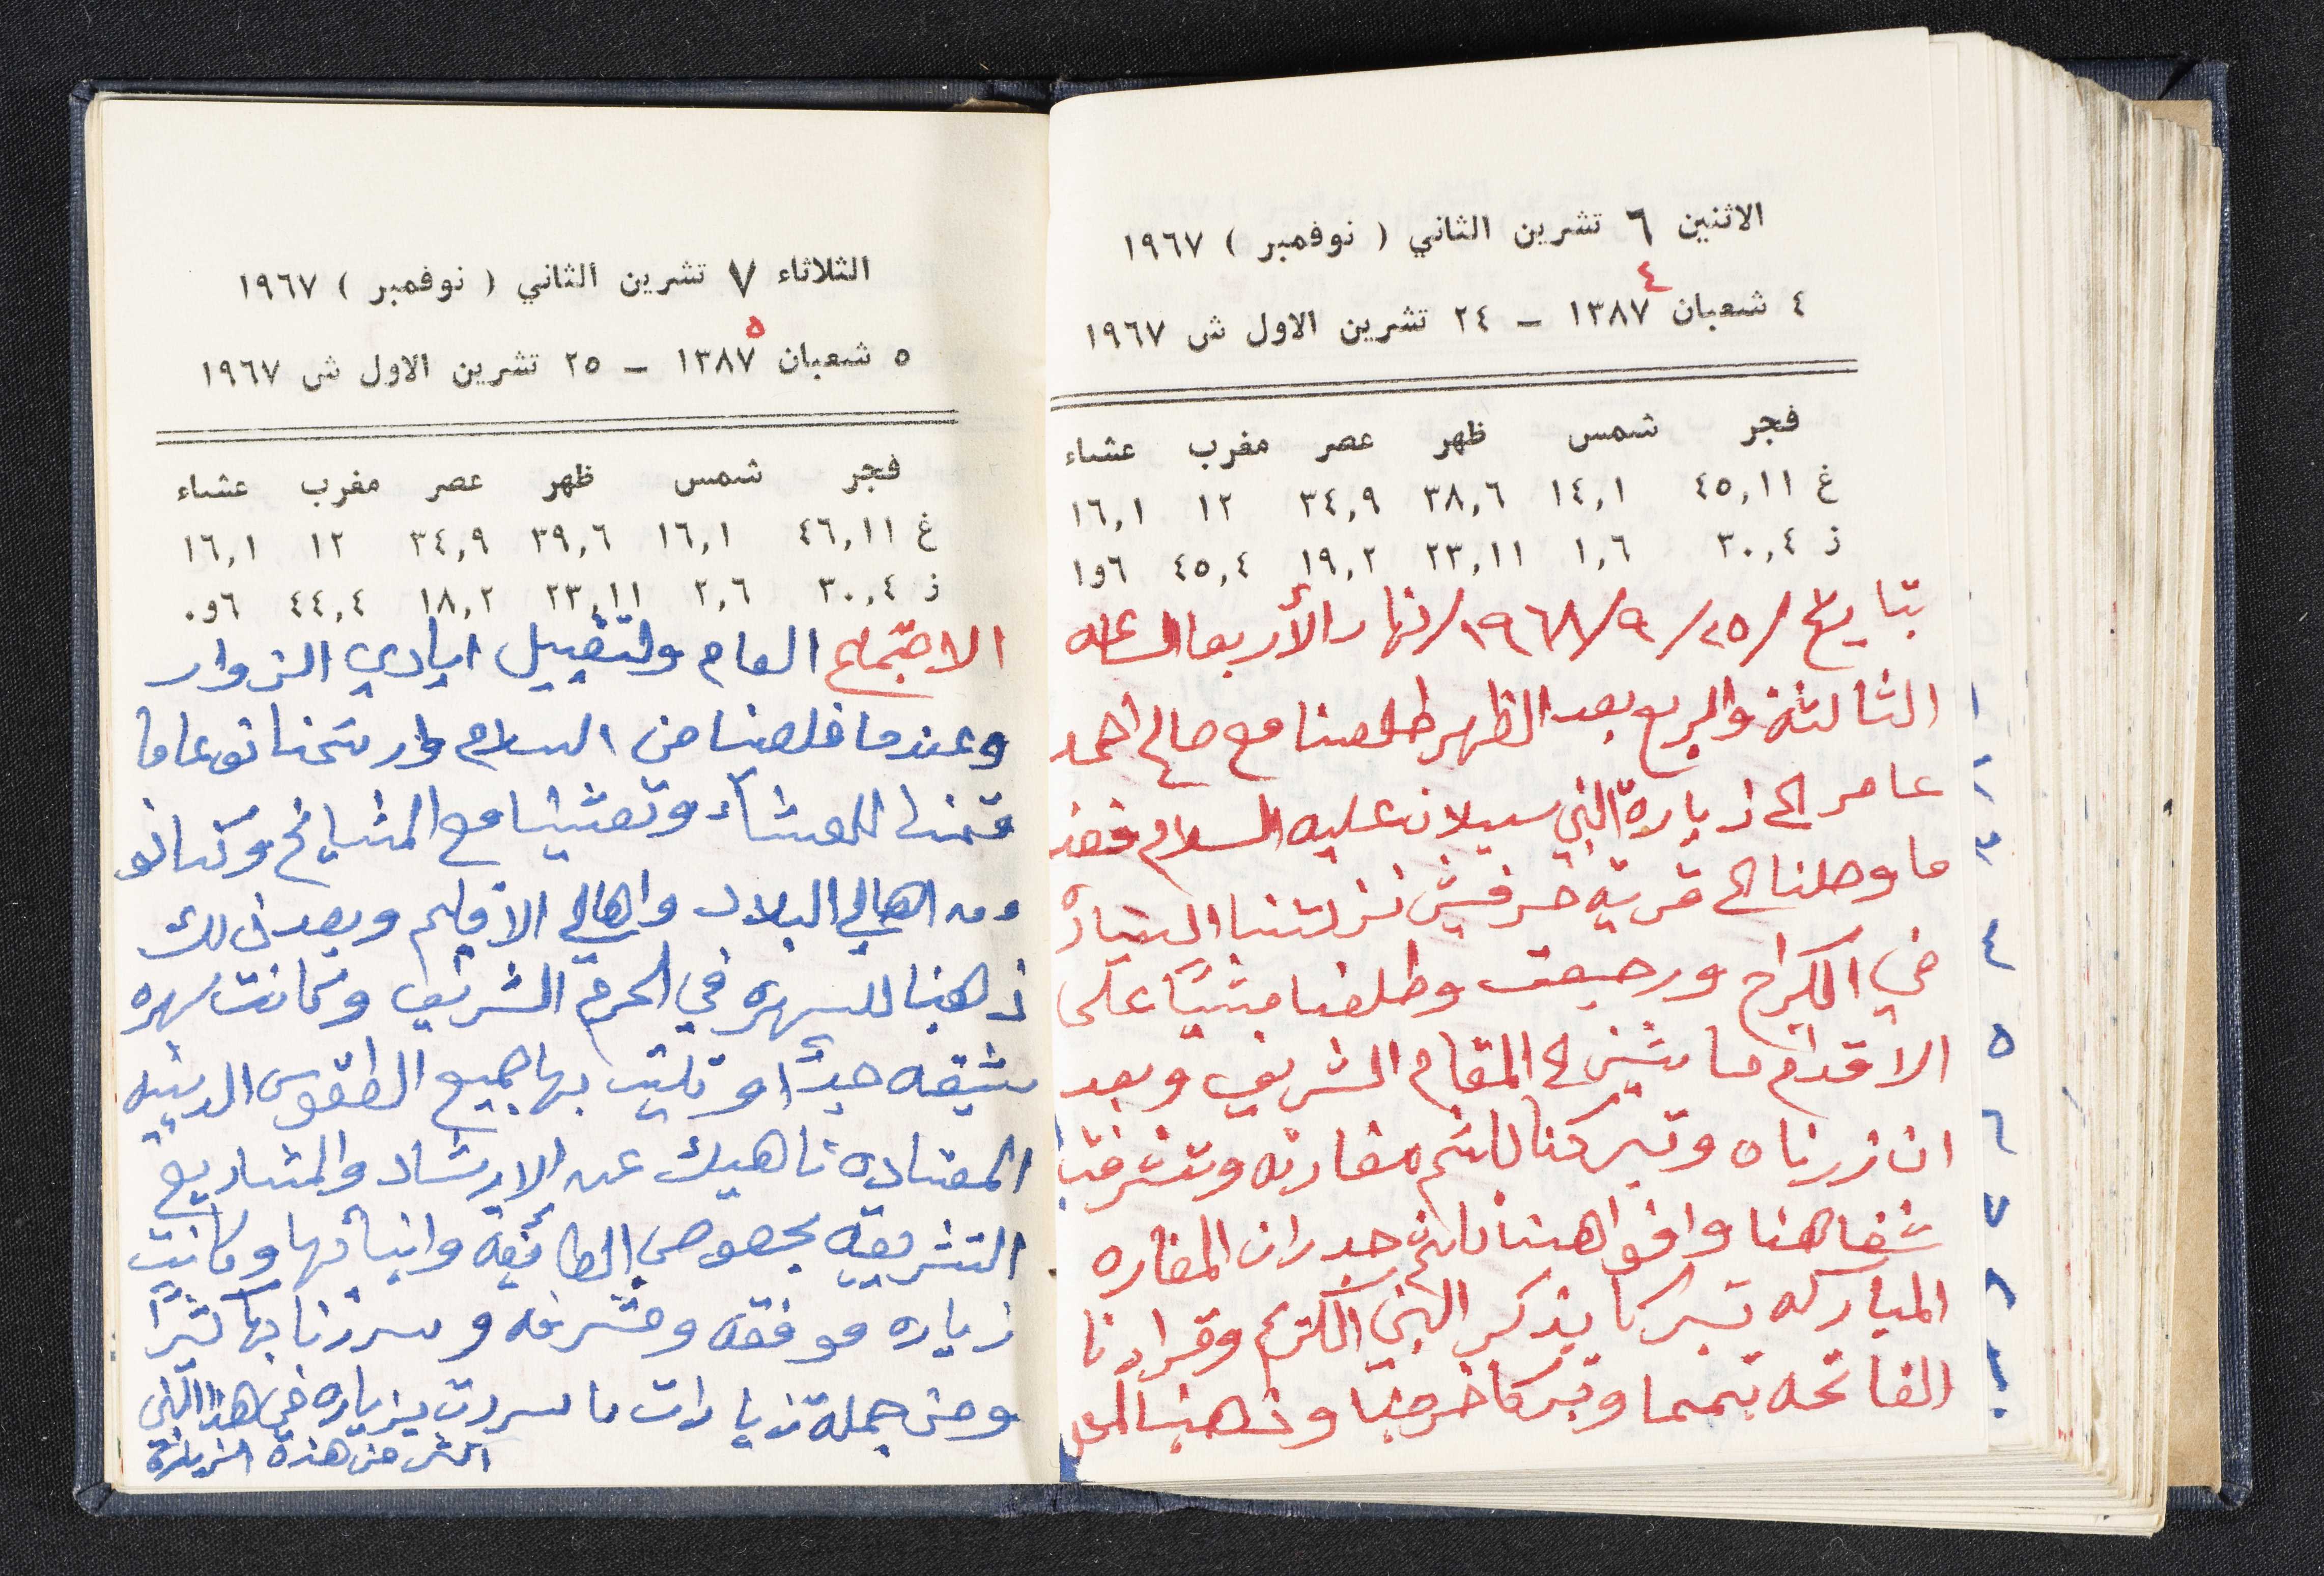 الاثنين ٦ تشرين الثاني ( نوفمبر ) ١٩٦٧
٤
٤ شعبان ١٣٨٧ – ٢٤ تشرين الاول ش ١٩٦٧
فجر شمس ظهر عصر مغرب عشاء
غ ٤٥,١١ ١٤,١ ٣٨,٦ ٣٤,٩ ١٢ ١٦,١
ز ٣٠,٤ ١,٦ ٢٣,١١ ١٩,٢ ٤٥,٤ ٦و١
بتاريخ /٢٥/٩/١٩٦٨/ نهار الأربعا الساعه
١ الثالثة والربع بعد الظهر طلعنا مع صالح احمد
٢ عامر الى زيارة النبي سبلان عليه السلام فعند
٣ ما وصلنا الى قرية حرفيش نزلتنا السياره
٤ في الكراج ورجعت وطلعنا مشيًا على
٥ الاقدام ماشين الى المقام الشريف وبعد
٦ ان زرناه وتبركنا بلثم مغارته وتشرفت
٧ شفاهنا وافواهنا بلثم جدران المغاره
٨ المباركه تبركا بذكر النبي الكريم وقرأنا
الفاتحه تيمما وتبركا خرجنا وذهبنا لمحل
الثلاثاء ٧ تشرين الثاني ( نوفمبر ) ١٩٦٧
٥
٥ شعبان ١٣٨٧ – ٢٥ تشرين الاول ش ١٩٦٧
فجر شمس ظهر عصر مغرب عشاء
غ ٤٦,١١ ١٦,١ ٣٩,٦ ٣٤,٩ ١٢ ١٦,١
ز ٣٠,٤ ٢,٦ ٢٣,١١ ١٨,٢ ٤٤,٤ ٦و٠
الاجتماع العام ولتقبيل ايادي الزوار
وعندما خلصنا من السلام وارتحنا نوعاما
قمنا للعشاء وتعشينا مع المشايخ وكانو
من اهالي البلاد واهالي الاقليم وبعد ذلك
ذهبنا للسهره في الحرم الشريف وكانت سهره
شيقه جدًا وتليت بها جميع الطقوس الدينيه
المعتاده ناهيك عن الارشاد والمشاريع
التشريعيه بخصوص الطائفة وابنائها وكانت
زياره موفقه ومشرفه وسررنا بها كثيرًا
ومن جملة زيارات ما سررت بزياره في هذا النبي
اكثر من هذه الزيارة